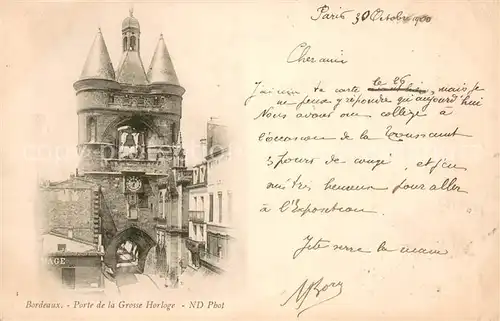 Paris 30 Octobre 1900
Cher ami
J'ai reçu ta carte le 26, mais je
ne peux y répondre qu'aujourd'hui
Nous avons au collège à
l'occasion de la Toussaint
3 jours de congé, et j'en
suis très heureux pour aller
à l'Exposition
Je te serre la main
AGE
Bordeaux. - Porte de la Grosse Horloge - ND Phot